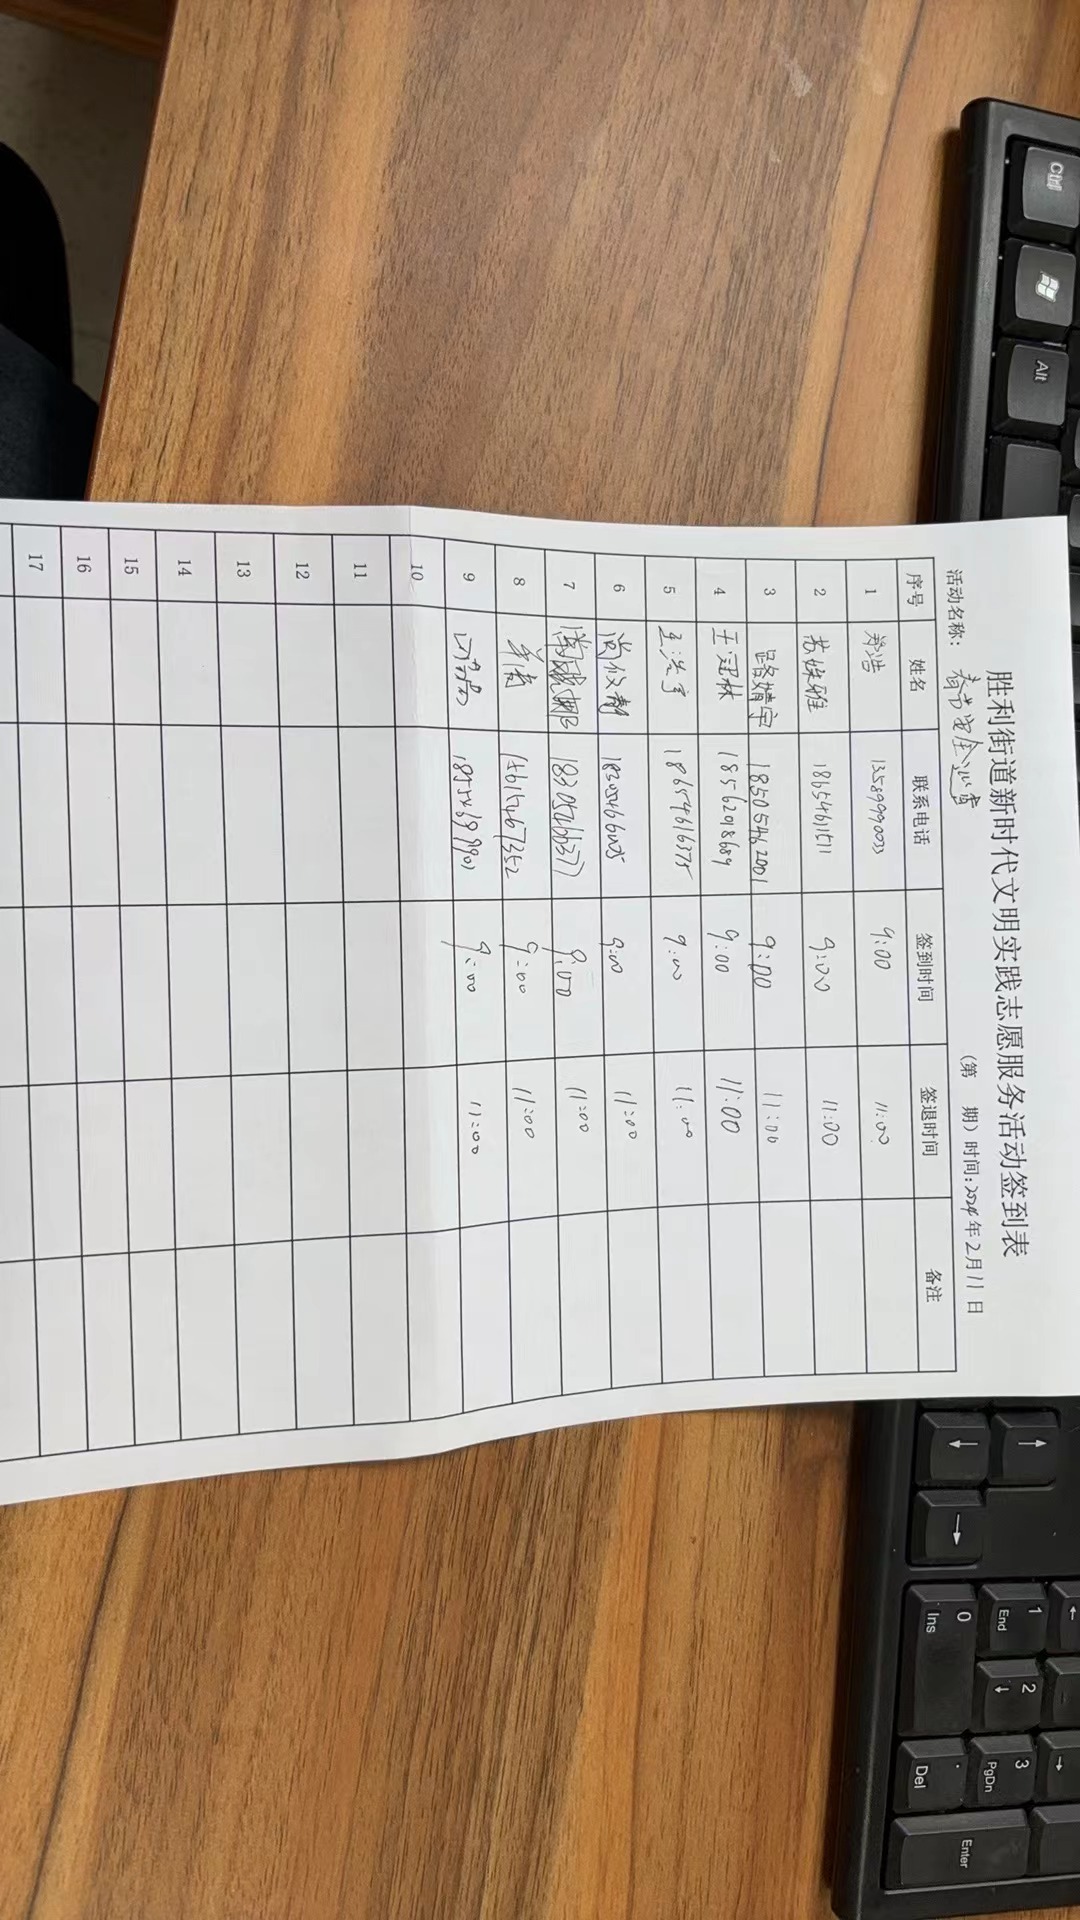 胜利街道新时代文明实践志愿服务活动签到表
活动名称：春节安全巡查 (第 期) 时间:2024年2月11日
序号 姓名 联系电话 签到时间 签退时间 备注
1 郑浩 13589990033 9:00 11:00
2 苏姝雅 18654611511 9:00 11:00
3 路婧宇 18505462001 9:00 11:00
4 王冠林 18562018689 9:00 11:00
5 18654616375 9:00 11:00
6 9:00 11:00
7 9:00 11:00
8 9:00 11:00
9 9:00 11:00
10
11
12
13
14
15
16
17
Ctrl
Alt
0
Ins
1
End
2
3
PgDn
.
Del
Enter